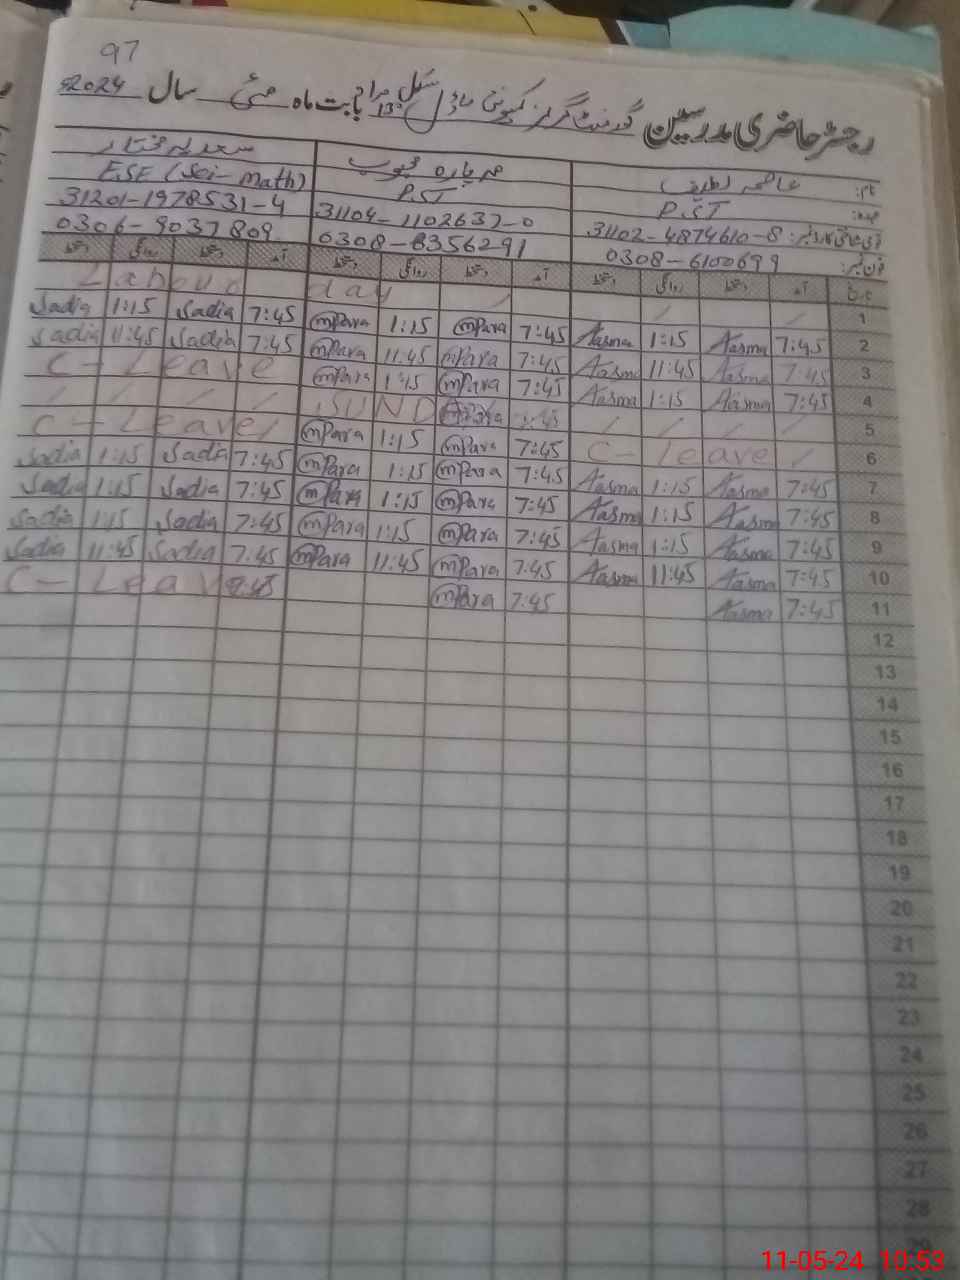 97
رجسٹر حاضری مدرسین گورنمنٹ گرلز کمیونٹی ماڈل سکول مراد بابت ماہ مئی سال 2024ء
نام: عاصمہ لطیف مہ پارہ محبوب سعدیہ مختار
عہدہ: P.S.T P.S.T E.S.E (Sci-Math)
شناختی کارڈ نمبر: 31102-4874610-8 31104-1102637-0 31201-1978531-4
فون نمبر: 0308-6100699 0308-8356291 0306-9037809
تاریخ آمد دستخط روانگی دستخط آمد دستخط روانگی دستخط آمد دستخط روانگی دستخط
Labour day / / / 1
Sadia 1:15 Sadia 7:45 mPara 1:15 mPara 7:45 Aasma 1:15 Aasma 7:45 2
Sadia 11:45 Sadia 7:45 mPara 11:45 mPara 7:45 Aasma 11:45 Aasma 7:45 3
C-Leave mPara 1:15 mPara 7:45 Aasma 1:15 Aasma 7:45 4
/ / / / SUND 7:45 / / / / 5
C-Leave / mPara 1:15 mPara 7:45 C-leave / 6
Sadia 1:15 Sadia 7:45 mPara 1:15 mPara 7:45 Aasma 1:15 Aasma 7:45 7
Sadia 1:15 Sadia 7:45 mPara 1:15 mPara 7:45 Aasma 1:15 Aasma 7:45 8
Sadia 1:15 Sadia 7:45 mPara 1:15 mPara 7:45 Aasma 1:15 Aasma 7:45 9
Sadia 11:45 Sadia 7:45 mPara 11:45 mPara 7:45 Aasma 11:45 Aasma 7:45 10
C-Leave 7:45 mPara 7:45 Aasma 7:45 11
12
13
14
15
16
17
18
19
20
21
22
23
24
25
26
27
28
29
11-05-24 10:53